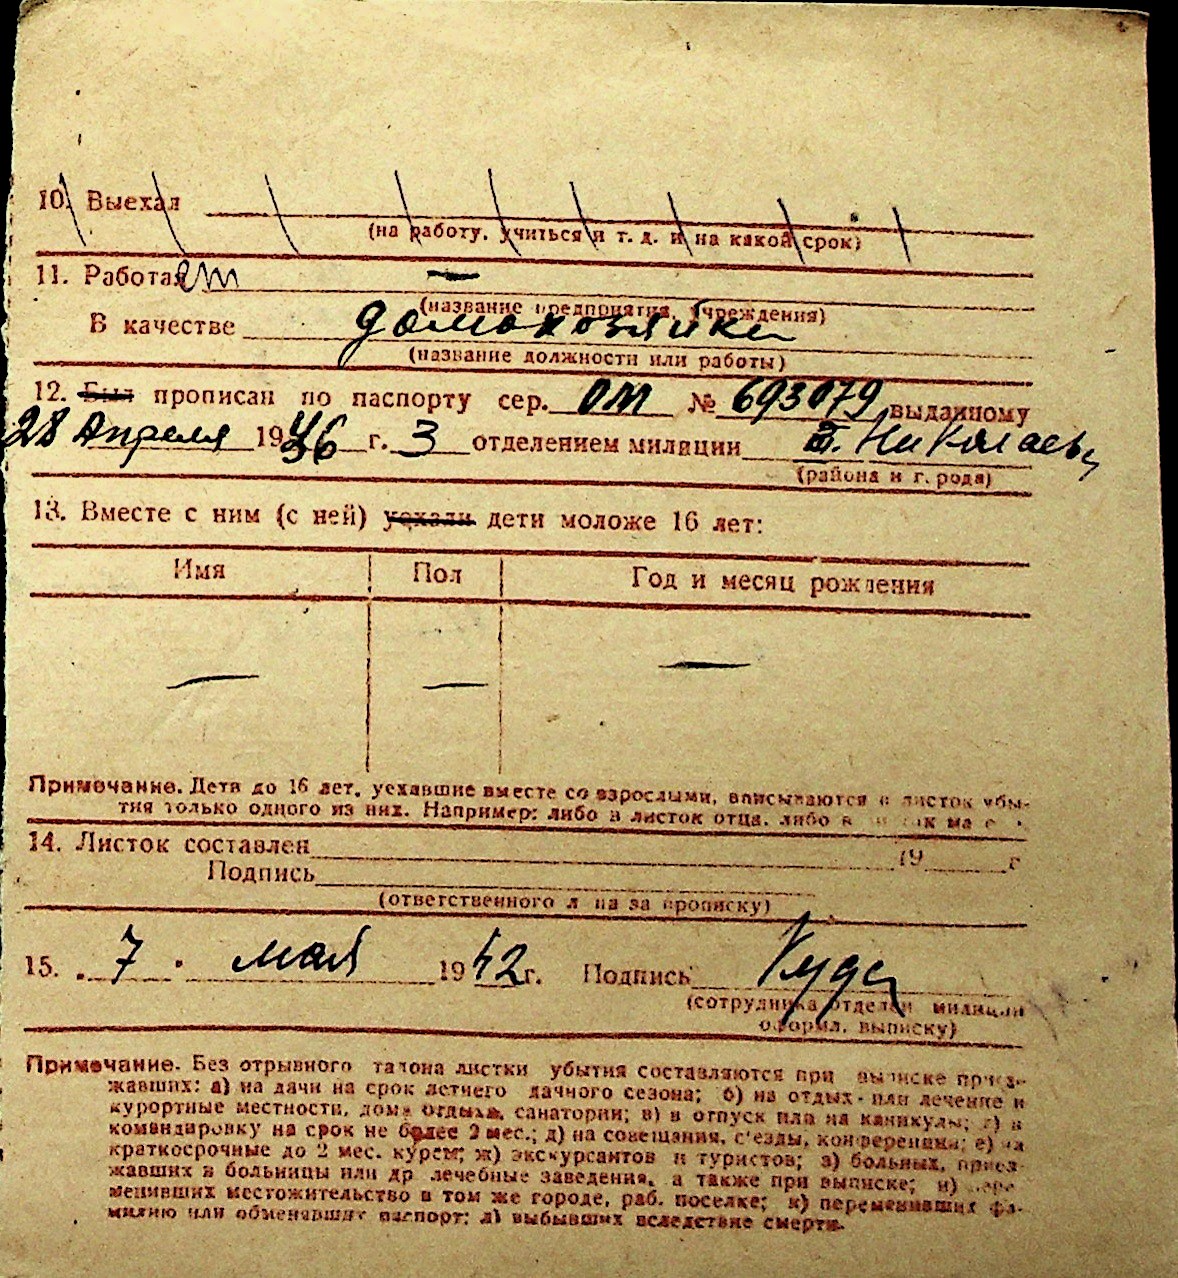 10. Выехал
(на работу, учиться и т. д. и на какой срок)
11. Работает —
(название предприятия, учреждения)
В качестве домохозяйки
(название должности или работы)
12. Был прописан по паспорту сер. ОМ № 693079 выданному
28 Апреля 1946 г. 3 отделением милиции г. Николаев
(района и г. рода)
13. Вместе с ним (с ней) уехали дети моложе 16 лет:
Имя Пол Год и месяц рождения
— — —
Примечание. Дети до 16 лет, уехавшие вместе со взрослыми, вписываются в листок убы-
тия только одного из них. Например: либо в листок отца, либо в
14. Листок составлен 19 г
Подпись
(ответственного л ца за прописку)
15. 7 мая 1952 г. Подпись
(сотрудника отделен милиции
оформл. выписку)
Примечание. Без отрывного талона листки убытия составляются при выписке приез-
жавших: а) на дачи на срок летнего дачного сезона; б) на отдых или лечение в
курортные местности, дома отдыха, санатории; в) в отпуск или на каникулы; г) в
командировку на срок не более 2 мес.; д) на совещания, с'езды, конференции; е) на
краткосрочные до 2 мес. курсы; ж) экскурсантов и туристов; з) больных, приез-
жавших в больницы или др лечебные заведения, а также при выписке; и) пере
менивших местожительство в том же городе, раб. поселке; к) переменивших фа-
милию или обменявших паспорт; л) выбывших вследствие смерти.